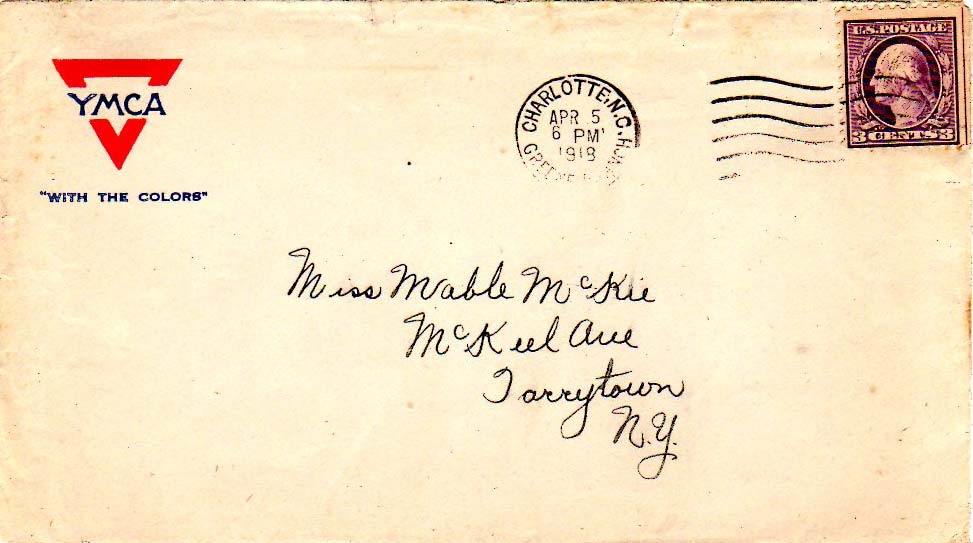 YMCA
"WITH THE COLORS"
CHARLOTTE, N.C.
APR 5
6 PM
1918
U.S. POSTAGE
3 CENTS 3
Miss Mable McKie
McKeel Ave
Tarrytown
N.Y.